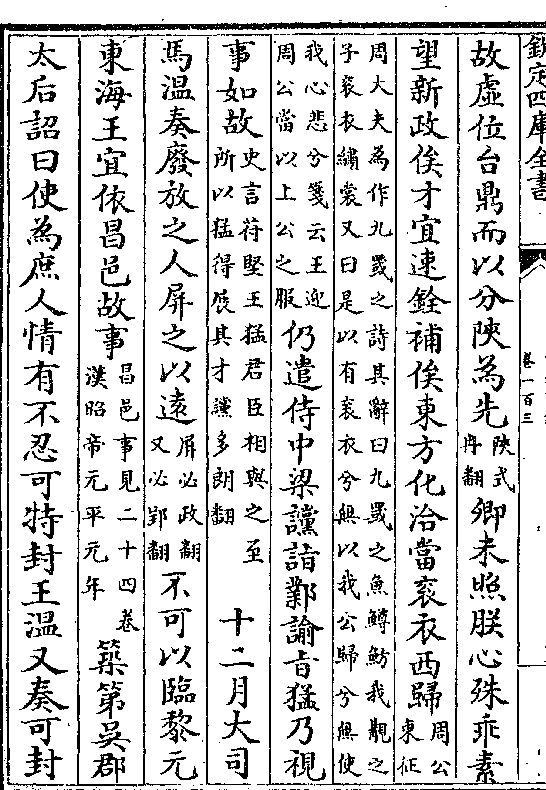 欽定四庫全書
卷一百三
故虛位台鼎而以分陝為先陝式冉翻卿未照朕心殊乖素
望新政俟才宜速銓補俟東方化洽當袞衣西歸周公東征
周大夫為作九罭之詩其辭曰九罭之魚鱒魴我覯之
子袞衣繡裳又曰是以有袞衣兮無以我公歸兮無使
我心悲兮箋云王迎周公當以上公之服仍遣侍中梁讜詣鄴諭旨猛乃視
事如故史言苻堅王猛君臣相與之至所以猛得展其才讜多朗翻十二月大司
馬溫奏廢放之人屏之以遠屏必政翻又必郢翻不可以臨黎元
東海王宜依昌邑故事昌邑事見二十四卷漢昭帝元平元年築第吳郡
太后詔曰使為庶人情有不忍可特封王溫又奏可封